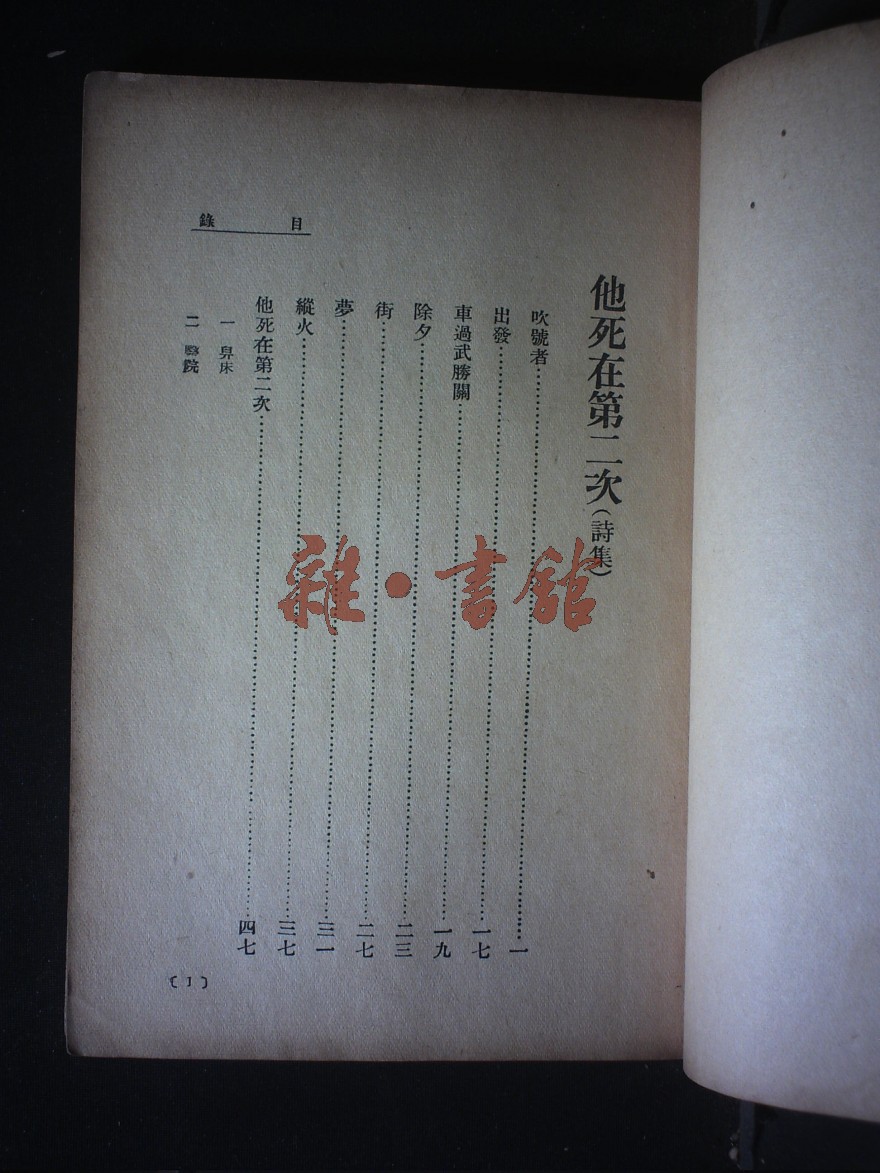 目錄
他死在第二次(詩集)
吹號者……一
出發……一七
車過武勝關……一九
除夕……二三
街……二七
夢……三一
縱火……三七
他死在第二次……四七
一 舁床
二 醫院
〔1〕
雜·書館